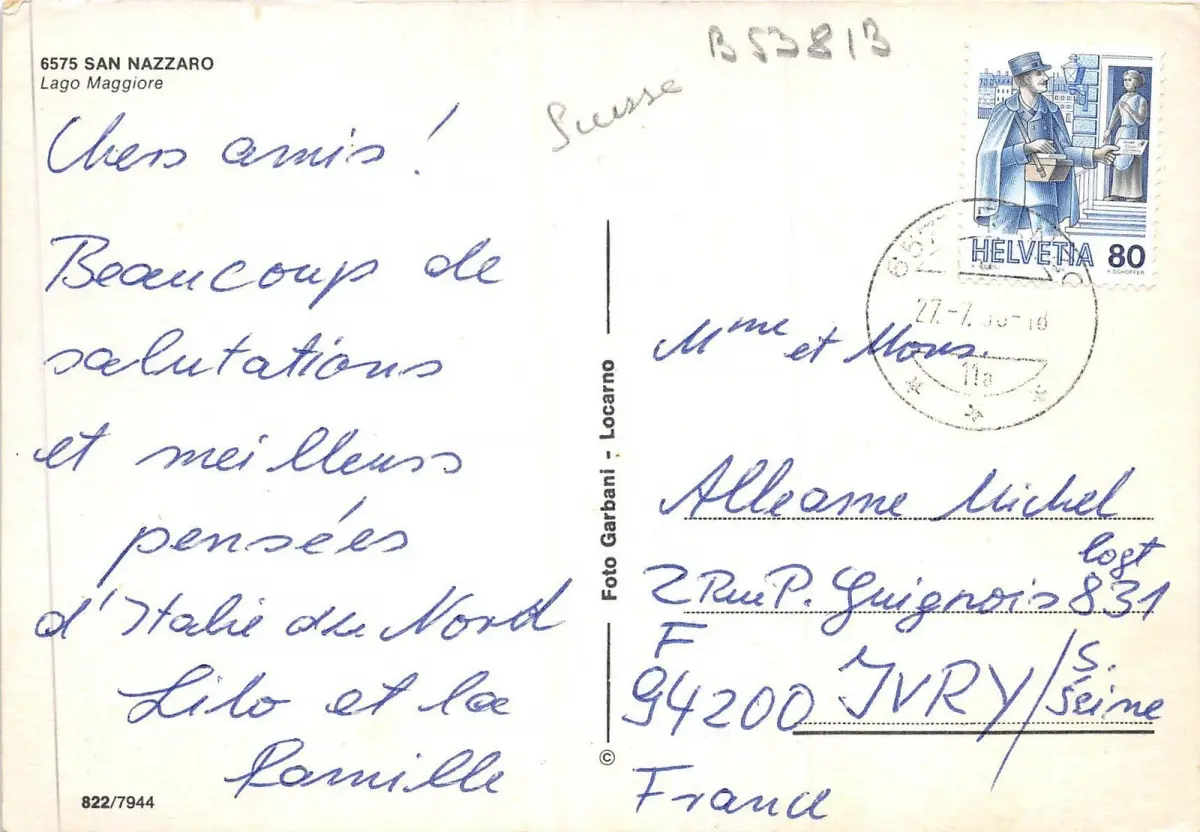 6575 SAN NAZZARO
Lago Maggiore
B53813
Suisse
Chers amis!
Beaucoup de
salutations
et meilleurs
pensées
d'Italie du Nord
Lilo et la
famille
822/7944
Foto Garbani - Locarno
©
HELVETIA 80
27.-7.
11a
Mme et Mons.
Alleaume Michel
logt
2 Rue P. Guignois 831
F
94200 IVRY/s.
Seine
France